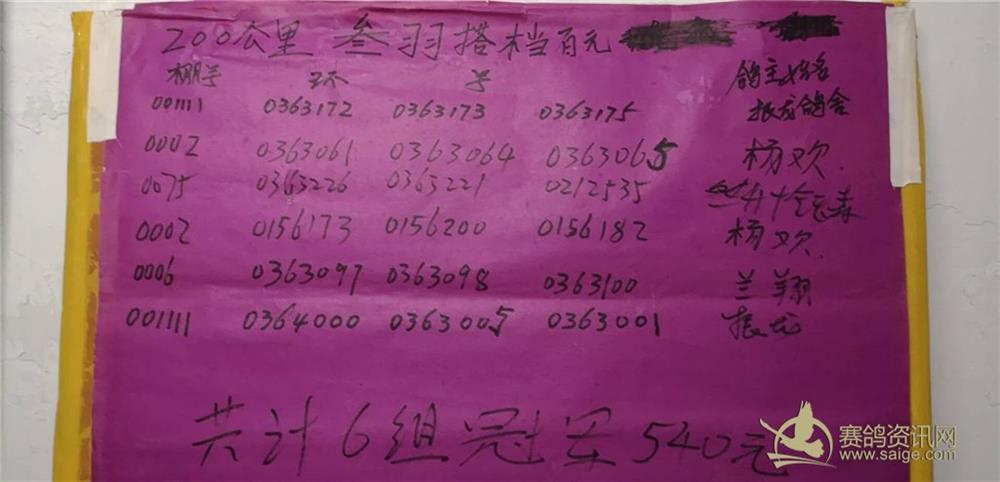 200公里 叁羽搭档百元
棚号 环 号 鸽主姓名
001111 0363172 0363173 0363175 振龙鸽舍
0002 0363061 0363064 0363065 杨欢
0075 0363226 0363221 0212535
0002 0156173 0156200 0156182 杨欢
0006 0363097 0363098 0363100 兰翔
001111 0364000 0363005 0363001 振龙
共计6组冠军540元
赛鸽资讯网
www.saige.com